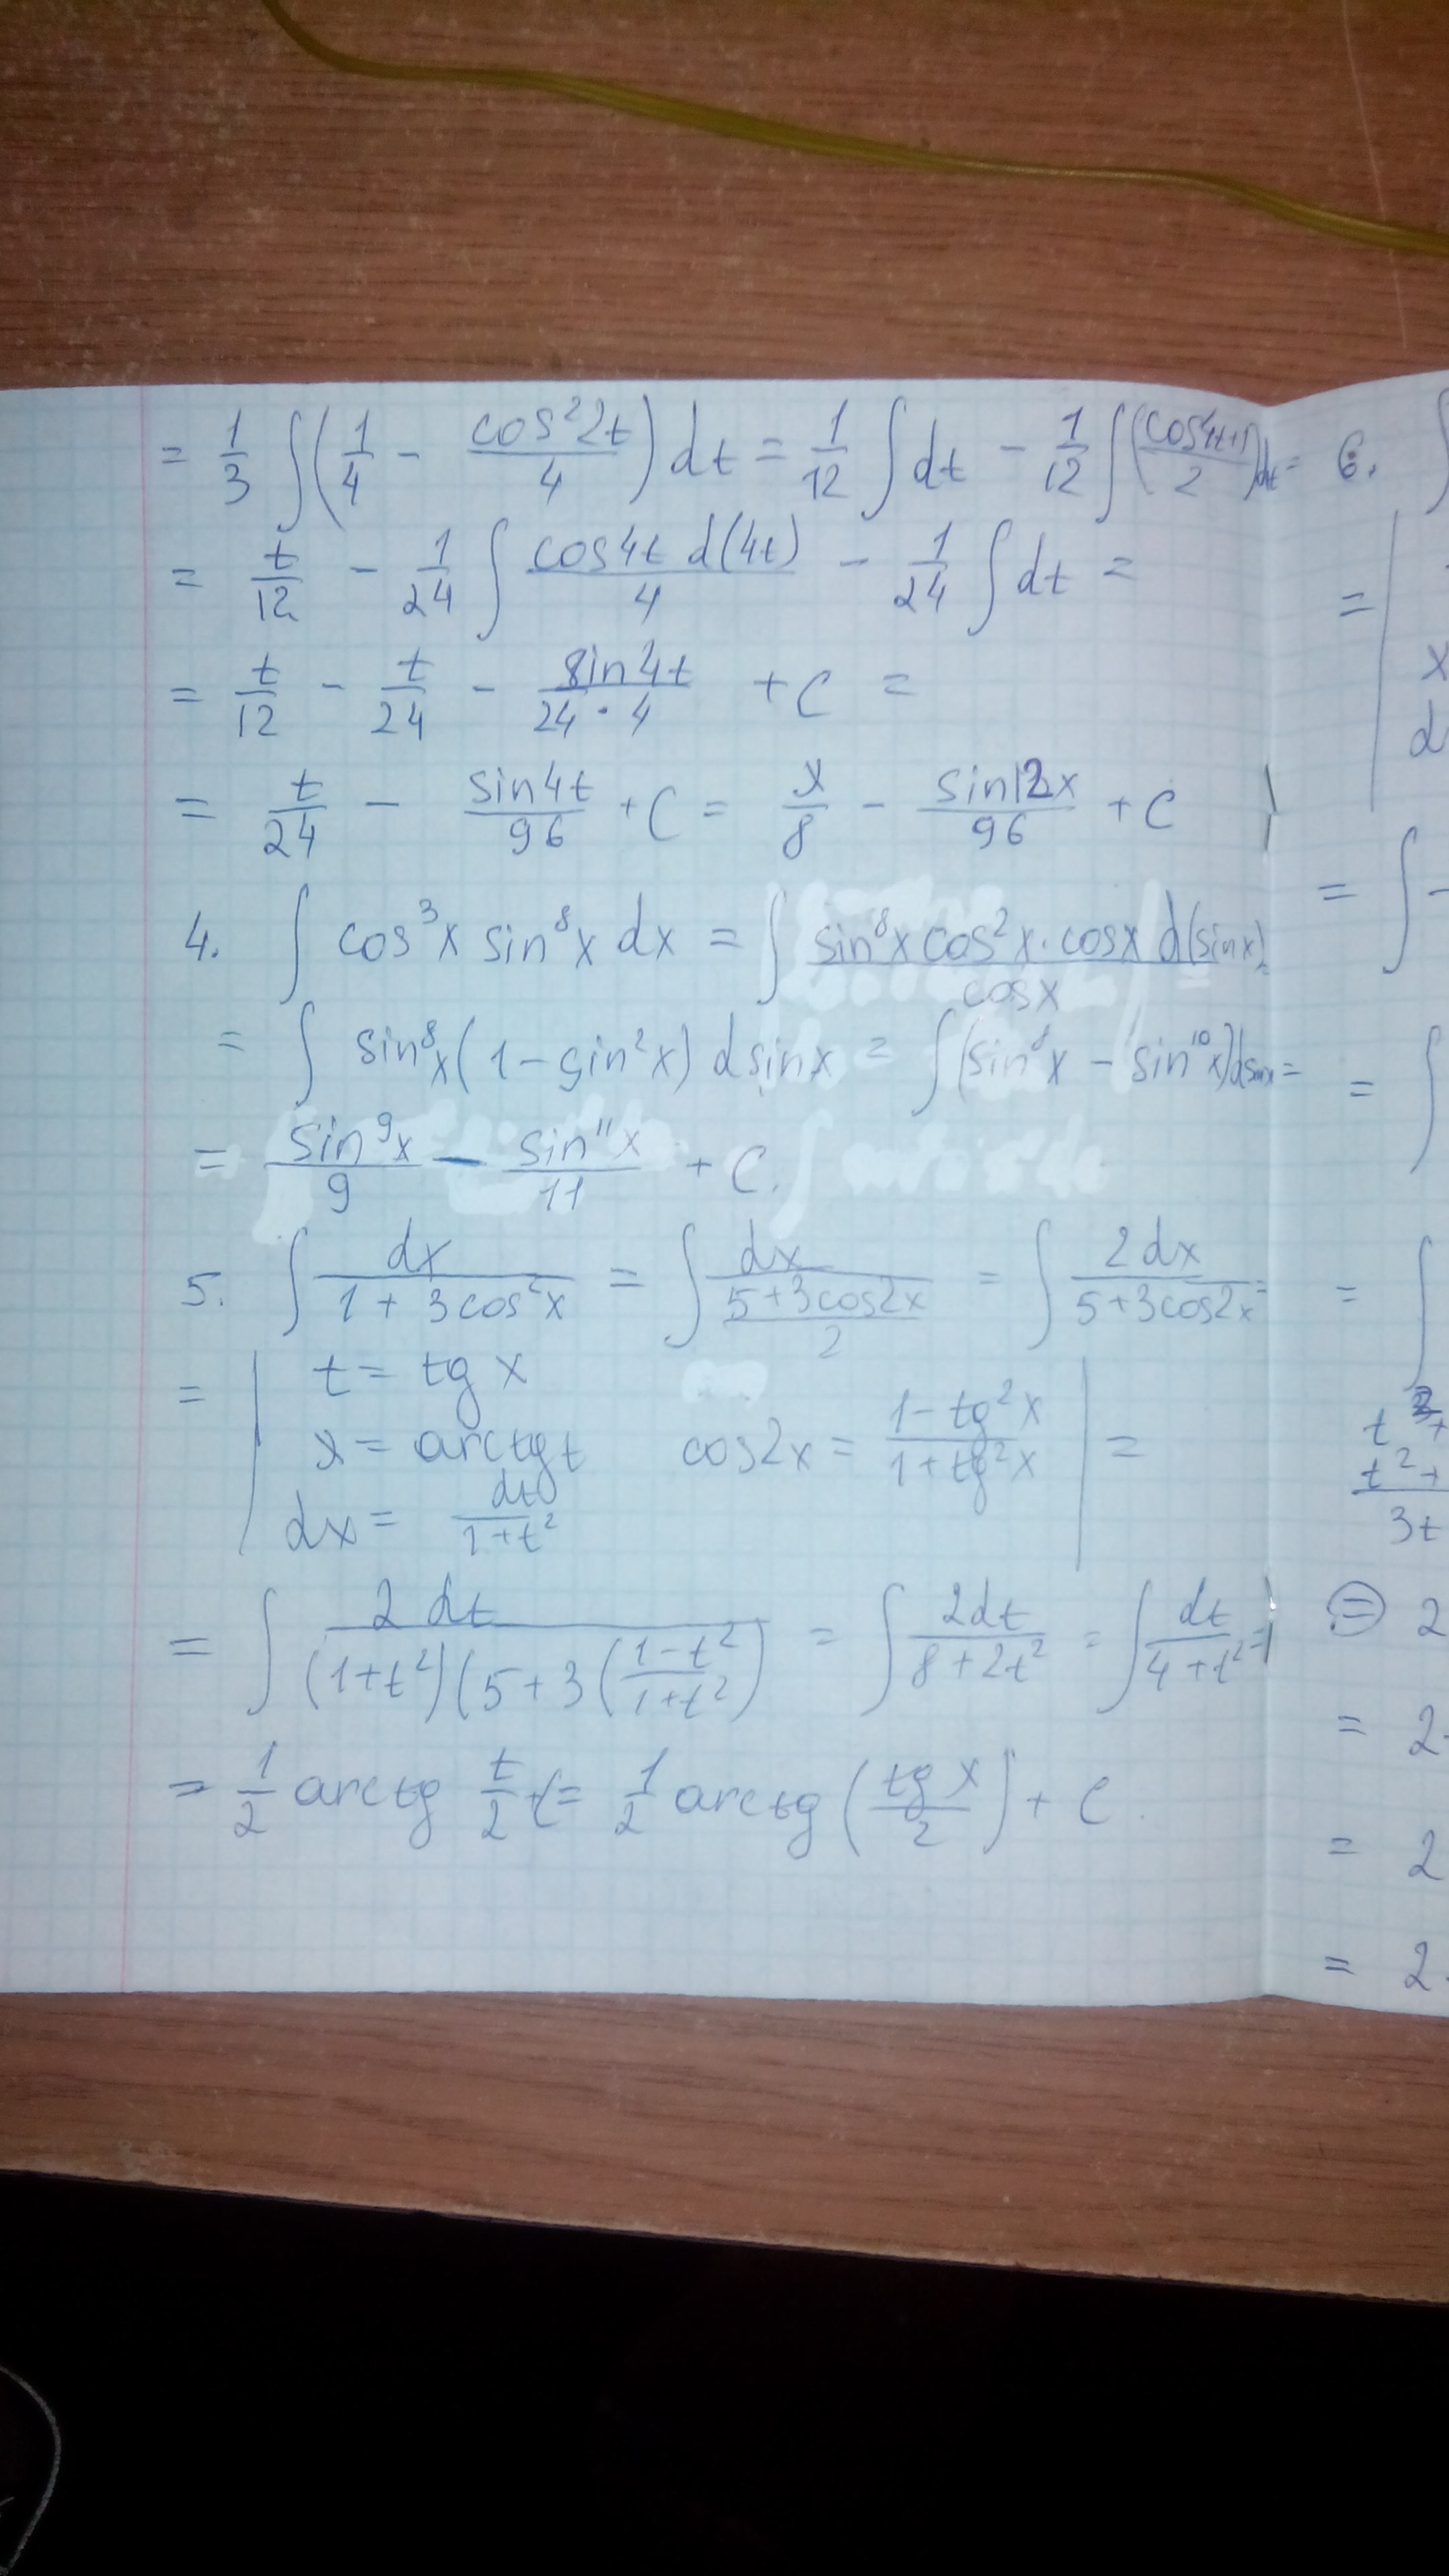 = 1/3 ∫(1/4 - cos²2t/4) dt = 1/12 ∫dt - 1/12 ∫(cos4t+1/2)dt =
= t/12 - 1/24 ∫ cos4t d(4t)/4 - 1/24 ∫dt =
= t/12 - t/24 - sin4t/24·4 + C =
= t/24 - sin4t/96 + C = x/8 - sin12x/96 + C
4. ∫ cos³x sin⁸x dx = ∫ sin⁸x cos²x·cosx d(sinx)/cosx =
= ∫ sin⁸x(1-sin²x) dsinx = ∫(sin⁸x - sin¹⁰x)dsinx =
= sin⁹x/9 - sin¹¹x/11 + C.
5. ∫ dx/1+3cos²x = ∫ dx/5+3cos2x/2 = ∫ 2dx/5+3cos2x =
= | t = tg x
x = arctg t cos2x = 1-tg²x/1+tg²x | =
dx = dt/1+t²
= ∫ 2dt/(1+t²)(5+3(1-t²/1+t²) = ∫ 2dt/8+2t² = ∫ dt/4+t² =
= 1/2 arctg t/2 + C = 1/2 arctg (tg x/2) + C.
6. ∫
= |
x
d
= ∫
= ∫
= ∫
t² +
3t
= 2
= 2·
= 2
= 2·